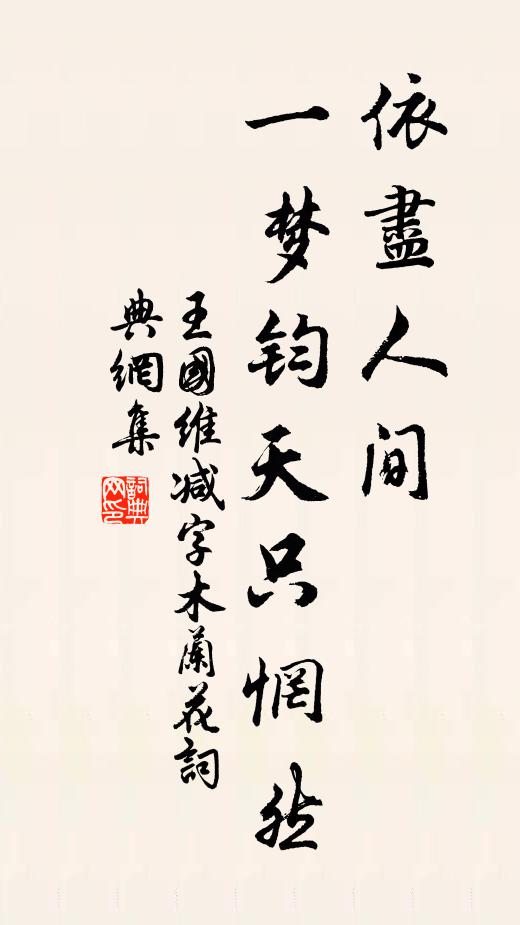 依盡人间
一梦钧天只惘然
王國维减字木蘭花詞
典網集
詞典网印